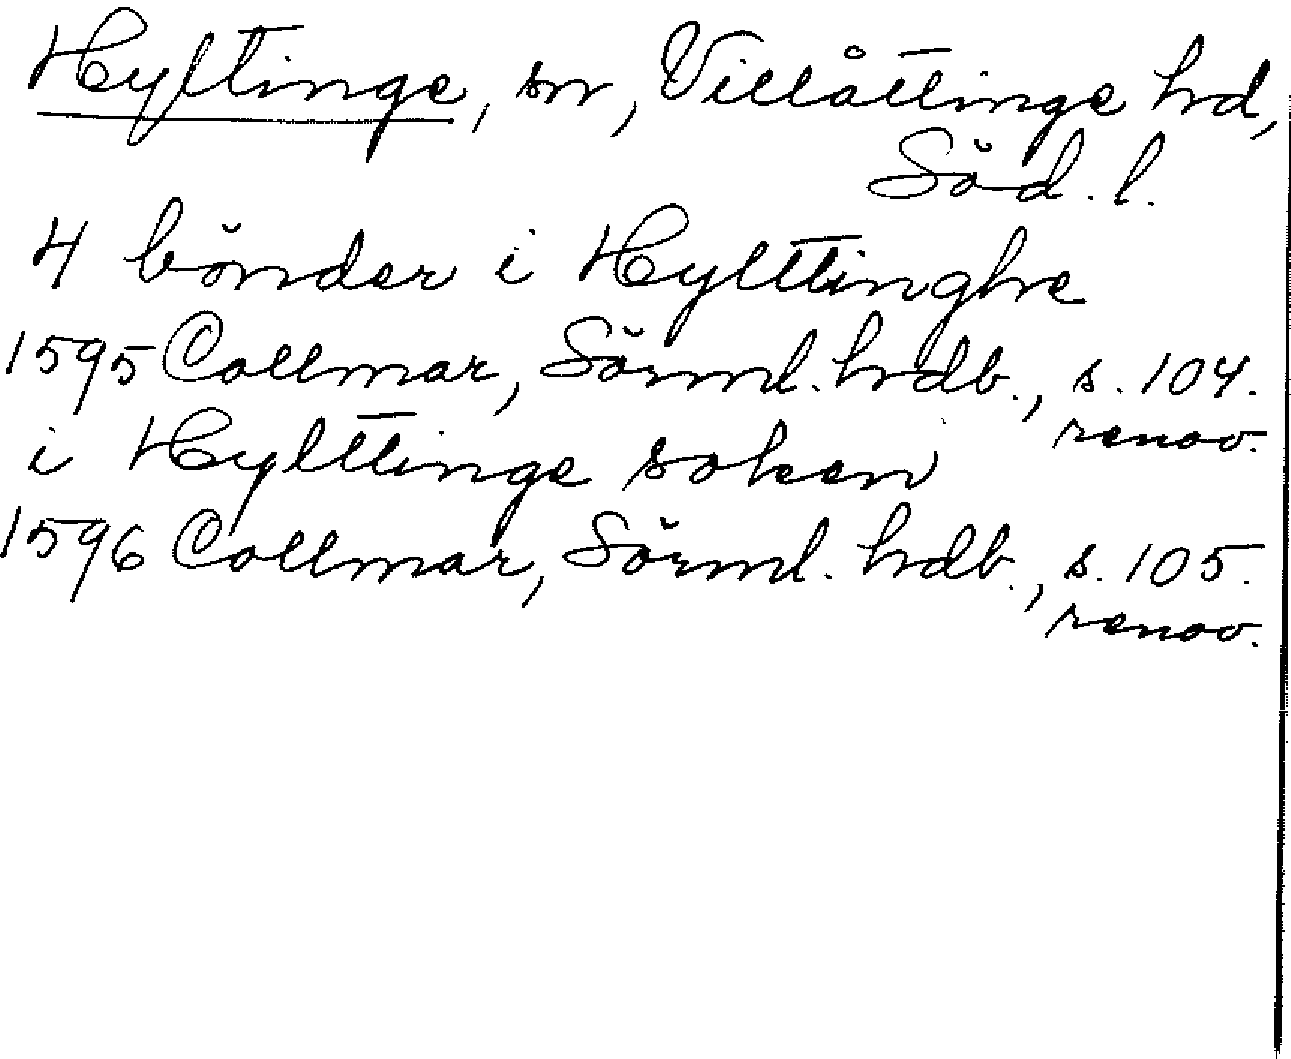 Hyltinge, sn, Villåttinge hd,
Söd. l.
4 bönder i Hylttinghe
1595 Collmar, Sörml. hdb., s. 104.
renov.
i Hylttinge soken
1596 Collmar, Sörml. hdb., s. 105.
renov.